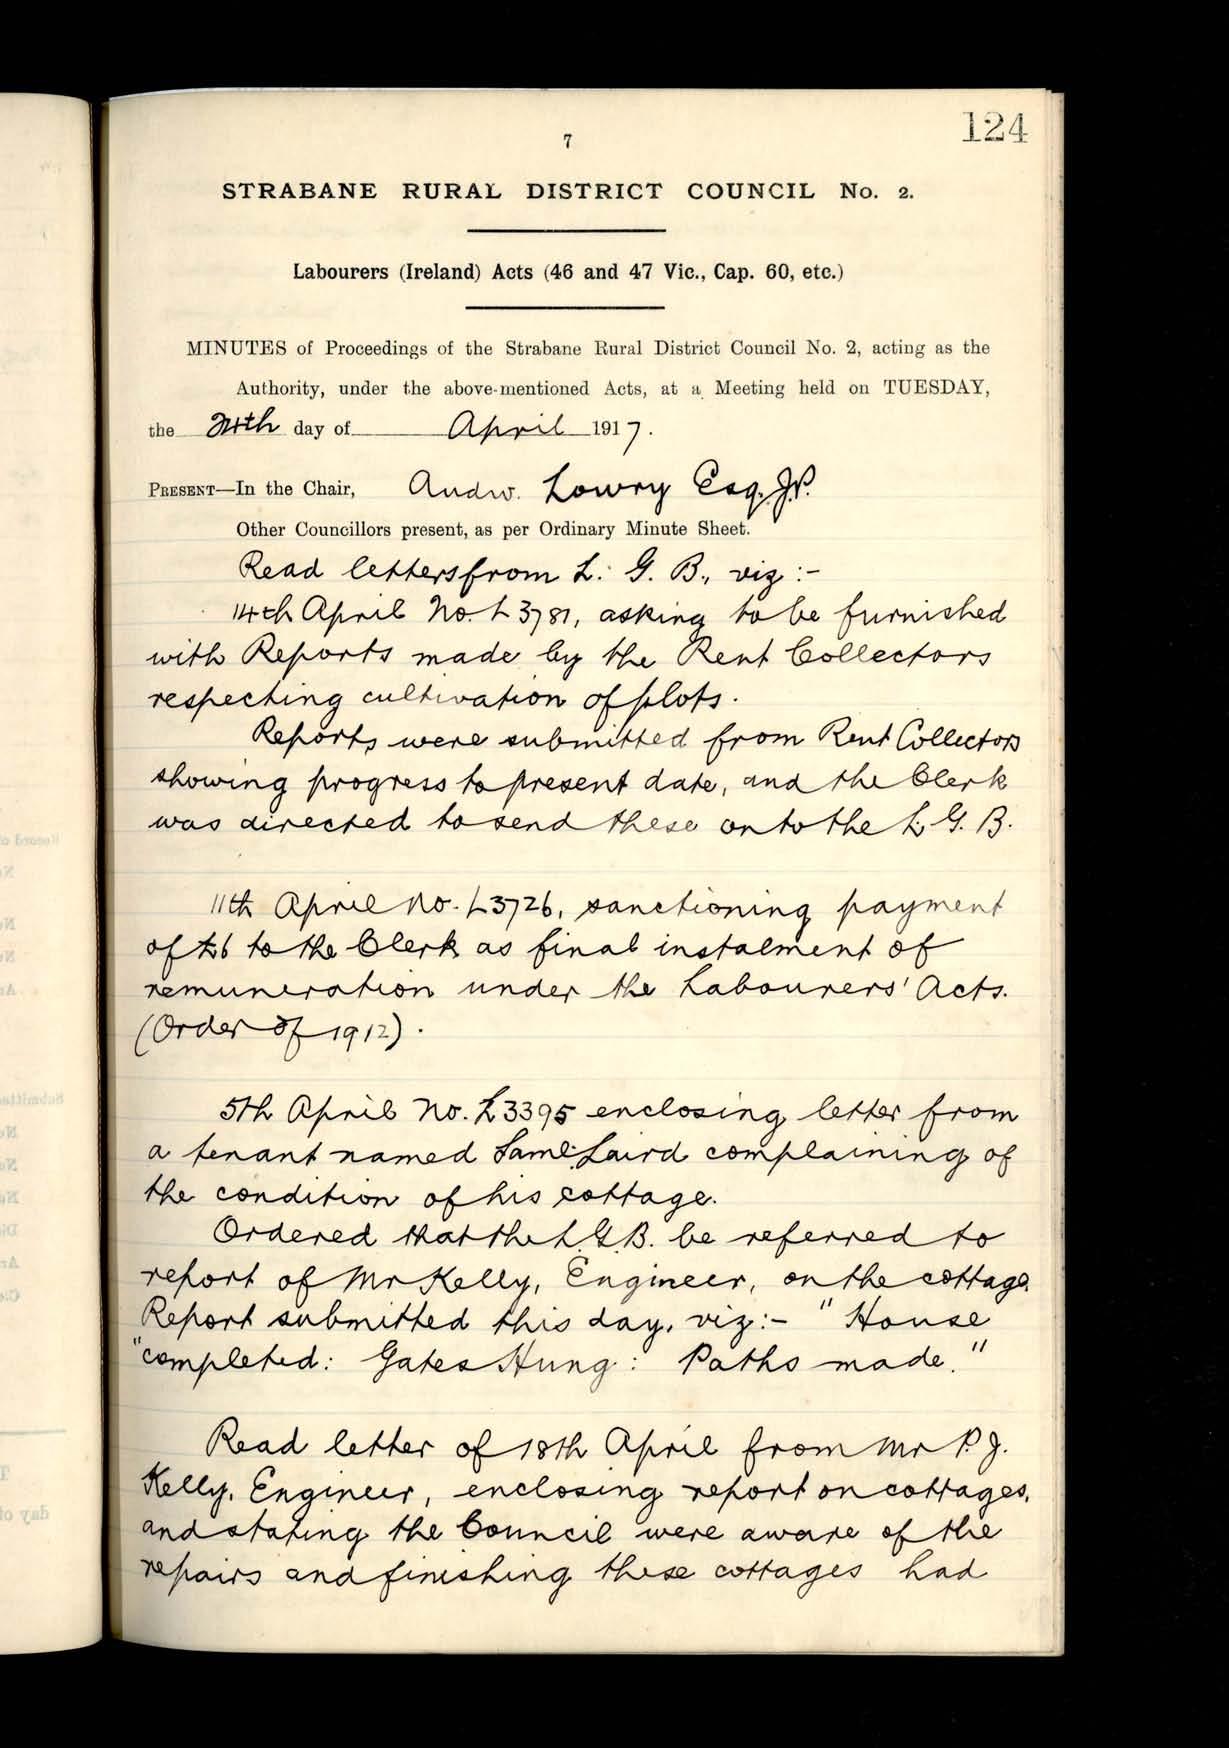 124
7
STRABANE RURAL DISTRICT COUNCIL No. 2.
Labourers (Ireland) Acts (46 and 47 Vic., Cap. 60, etc.)
MINUTES of Proceedings of the Strabane Rural District Council No. 2, acting as the
Authority, under the above-mentioned Acts, at a Meeting held on TUESDAY,
the 24th day of April 1917.
PRESENT—In the Chair, Andw. Lowry Esq. J.P.
Other Councillors present, as per Ordinary Minute Sheet.
Read letters from L. G. B., viz :-
14th April No. L 3781, asking to be furnished
with Reports made by the Rent Collectors
respecting cultivation of plots.
Reports were submitted from Rent Collectors
showing progress to present date, and the Clerk
was directed to send these on to the L. G. B.
11th April No. L3726, sanctioning payment
of £6 to the Clerk as final instalment of
remuneration under the Labourers' Acts.
(Order of 1912).
5th April No. L3395 enclosing letter from
a tenant named Saml. Laird complaining of
the condition of his cottage.
Ordered that the L.G.B. be referred to
report of Mr Kelly, Engineer, on the cottage.
Report submitted this day, viz:- " House
"completed: Gates Hung: Paths made."
Read letter of 18th April from Mr P. J.
Kelly, Engineer, enclosing report on cottages,
and stating the Council were aware of the
repairs and finishing these cottages had